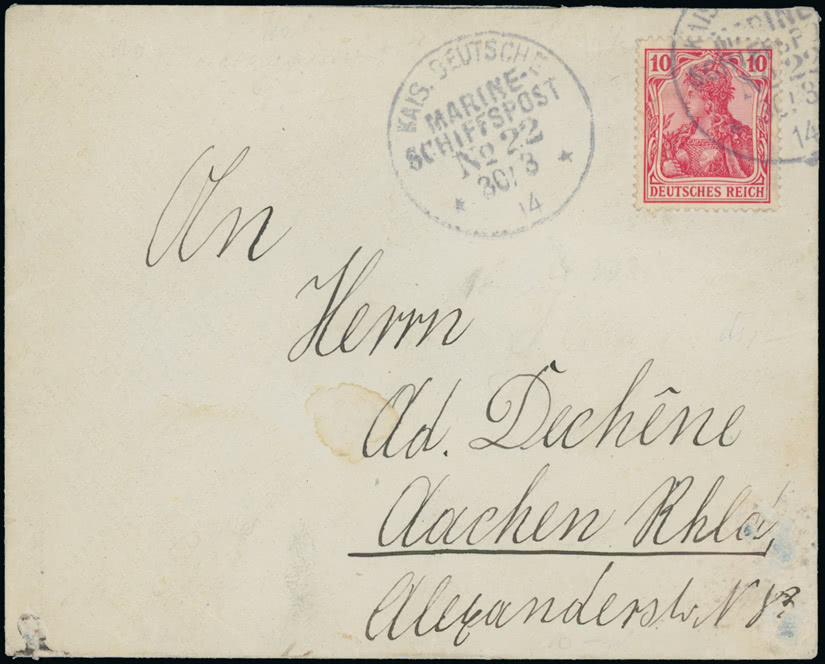 KAIS. DEUTSCHE
MARINE-
SCHIFFSPOST
No 22
30/3
14
10 10
DEUTSCHES REICH
KAIS.
MARINE
22
14
An
Herrn
Ad. Dechêne
Aachen Rhld,
Alexanderstr. N